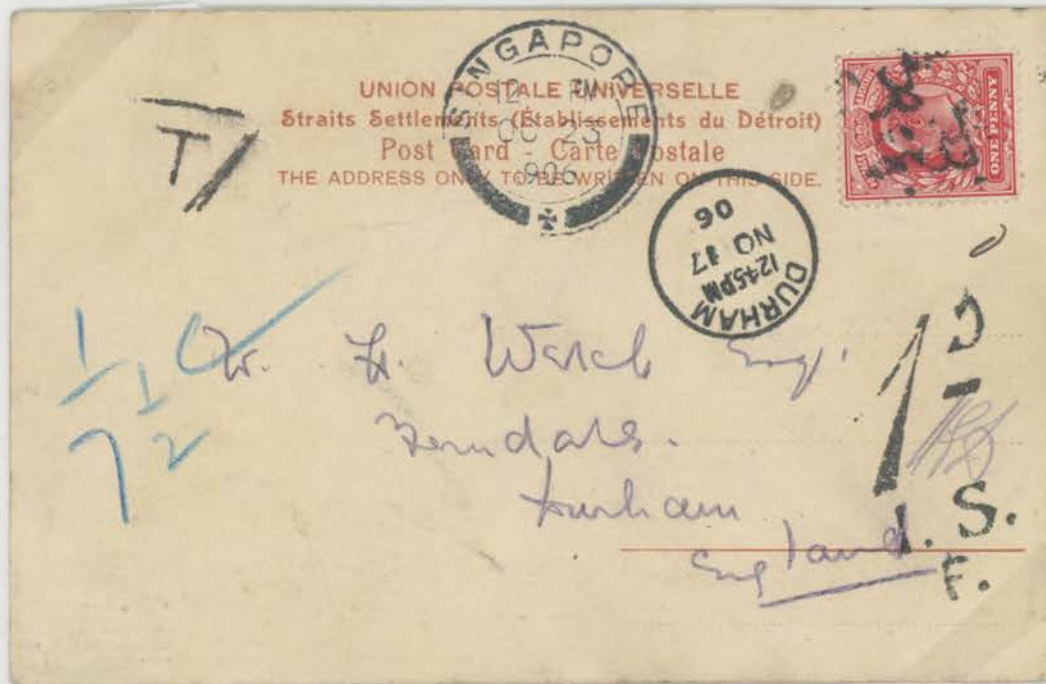 UNION POSTALE UNIVERSELLE
Straits Settlements (Établissements du Détroit)
Post Card - Carte Postale
THE ADDRESS ONLY TO BE WRITTEN ON THIS SIDE.
SINGAPORE
12
OC 23
1906
ONE PENNY
T/
DURHAM
12.45PM
NO 17
06
W. H. Esq.
Durham
England
1 D
I. S.
F.